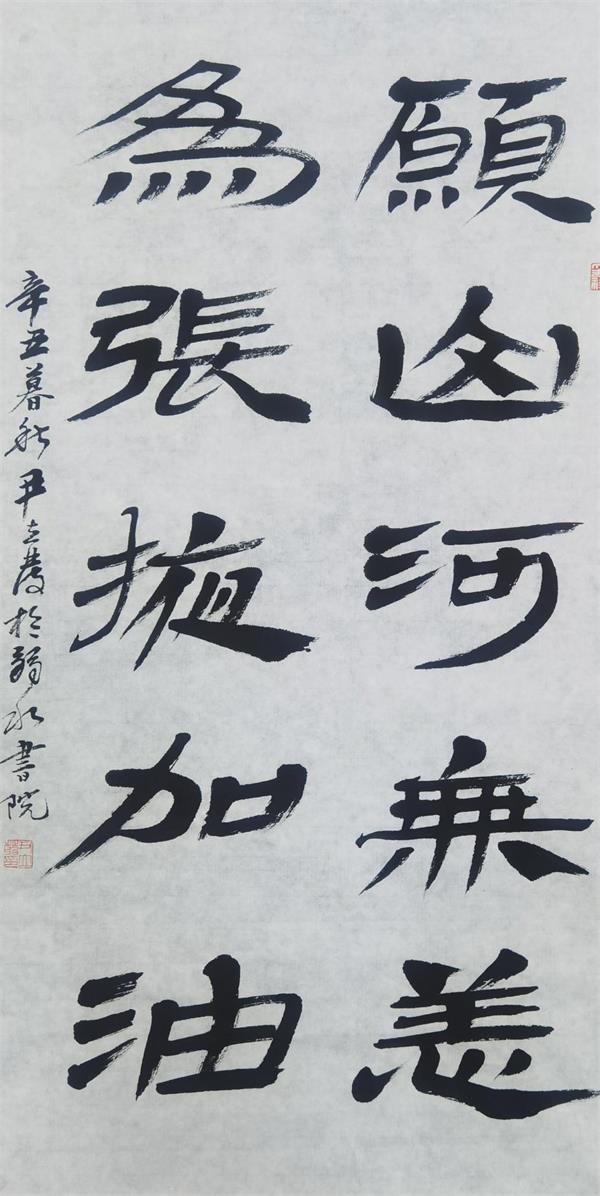 願山河無恙
為張掖加油
辛丑暮秋尹立慶於弱水書院